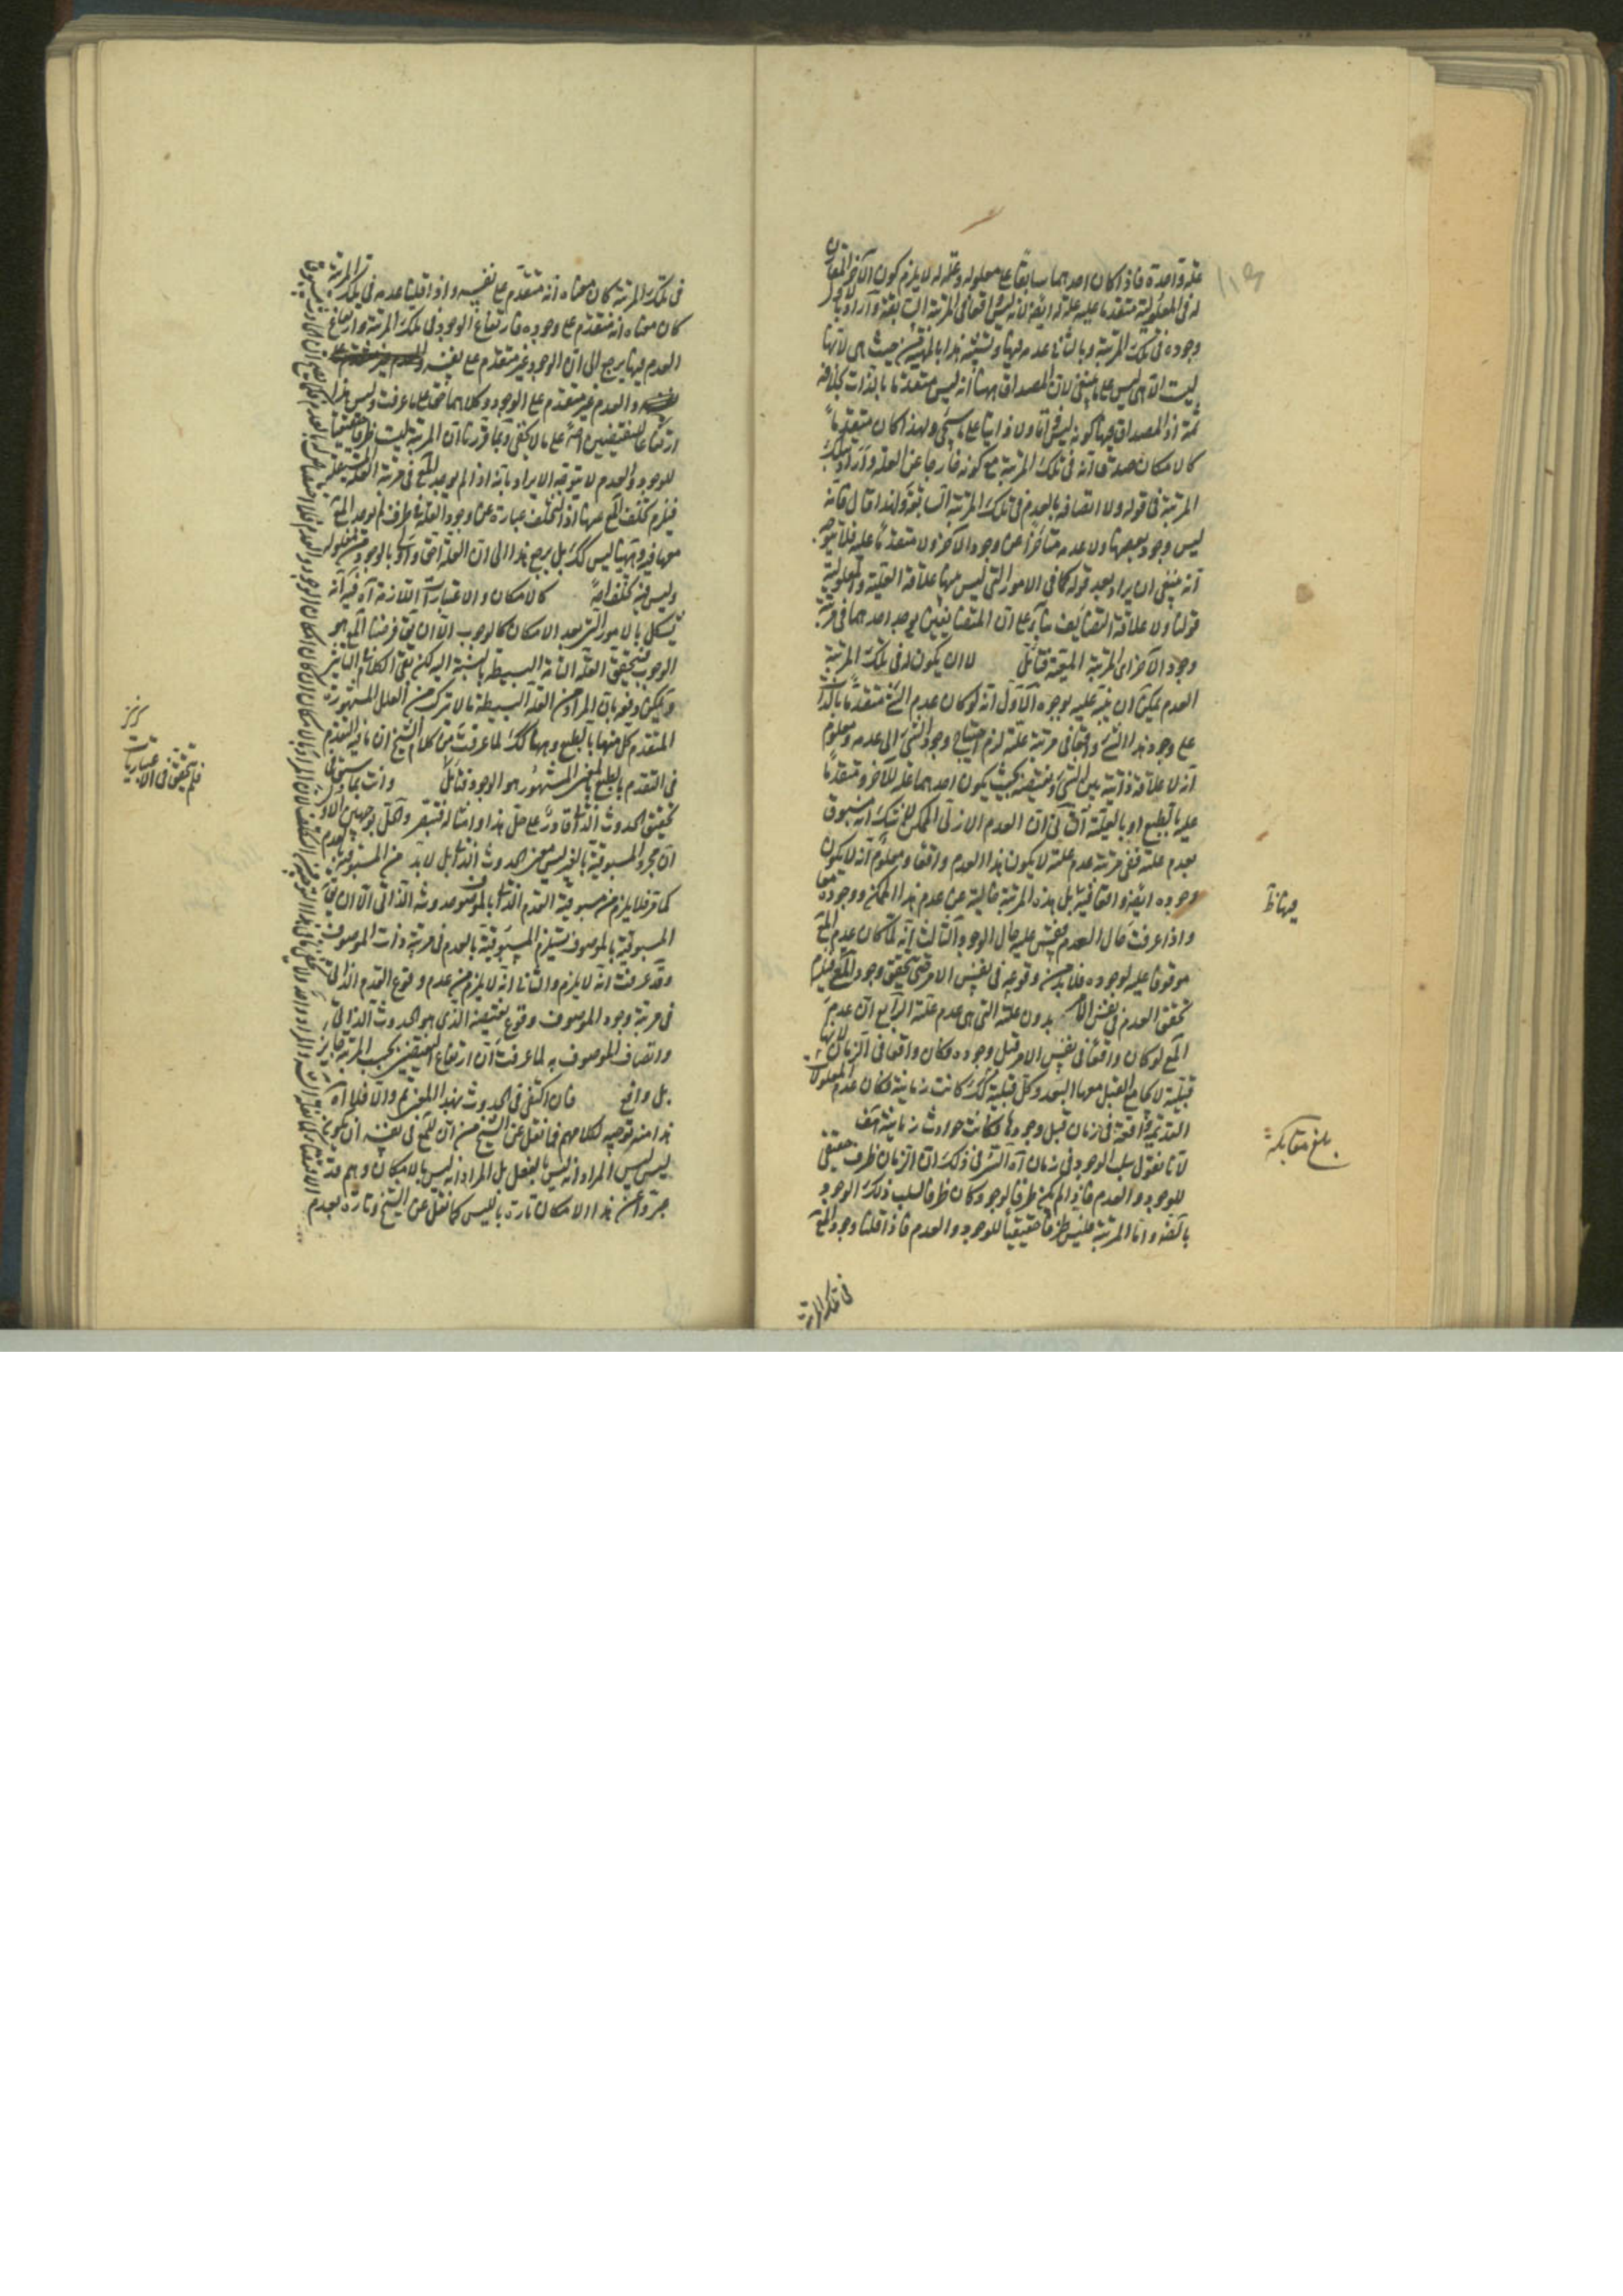 علة واحدة فاذا كان احدهما سابقا على معلوله وعلة له لا يلزم كون الآخر المقارن
له فى المعلولية متقدما عليه علة له ايضا لانه ليس واقعا فى المرتبة السابقة واراد بالاول
وجوده فى تلك المرتبة وبالثانى عدمه فيها ونسبته هذا بالمهية من حيث هى لانها
ليست الا هى ليس على ما ينبغى لان المصداق ههنا انه ليس متقدما بالذات بخلافه
ثمة اذ المصداق فيها كونه ليس ذاتا ولا ذاتيا على ما سيجئ ولهذا كان متقدما
كالامكان صدق انه فى تلك المرتبة مع كونه خارجا عن العلة واراد بتلك
المرتبة فى قوله ولا اتصافه بالعدم فى تلك المرتبة السابقة ولهذا قال فانه
ليس وجود بعضها ولا عدمه متأخرا عن وجود الآخر ولا متقدما عليه فلا يتوجه
انه ينبغى ان يراد بعد قوله كما فى الامور التى ليس بينها علاقة العلية والمعلولية
قولنا ولا علاقة التضايف بناء على ان المتضايفين يوجد احدهما فى مرتبة
وجود الآخر اى المرتبة المقيّة فتأمل لا ان يكون له فى تلك المرتبة
العدم يمكن ان ينبّه عليه بوجوه الاول انه لو كان عدم الشئ متقدما بالذات
على وجود هذا الشئ واقعا فى مرتبة علته لزم احتياج وجود الشئ الى عدمه ومعلوم
انه لا علاقة ذاتية بين الشئ ونقيضه بحيث يكون احدهما علة للآخر ومتقدما
عليه بالطبع او بالعلية الثانى ان العدم الازلى للممكن لا شك انه مسبوق
بعدم علته ففى مرتبة عدم علته لا يكون هذا العدم واقعا ومعلوم انه لا يكون
وجوده ايضا واقعا فيه بل هذه المرتبة خالية عن عدم هذا الممكن ووجوده معا
واذا عرفت حال العدم فقس عليه حال الوجود الثالث انه لما كان عدم المع
موقوفا عليه لوجوده فلا بد من وقوعه فى نفس الامر حتى يتحقق وجود المع فيلزم
تحقق العدم فى نفس الامر بدون علته التى هى عدم علته الرابع ان عدم
المع لو كان واقعا فى نفس الامر قبل وجوده وكان واقعا فى الزمان لانها
قبلية لا يجامع القبل معها البعد وكل قبلية كذلك كانت زمانية فكان عدم المعلولات
القديمة واقعة فى زمان قبل وجودها فكانت حوادث زمانية هف
لانا نقول سلب الوجود فى زمان آه السر فى ذلك ان الزمان ظرف حقيقى
للوجود والعدم فاذا لم يكن ظرفا لوجود كان ظرفا لسلب ذلك الوجود
بالضرورة واما المرتبة فليس ظرفا حقيقيا للوجود والعدم فاذا قلنا وجود المع
فى تلك المرتبة
فيها ظ
بلغ مقابلة
فى تلك المرتبة كان معناه انه متقدم على نفسه واذا قلنا عدمه فى تلك المرتبة
كان معناه انه متقدم على وجوده فارتفاع الوجود فى تلك المرتبة وارتفاع
العدم فيها يرجع الى ان الوجود غير متقدم على نفسه
والعدم غير متقدم على الوجود وكلاهما حق على ما عرفت وليس هذا
ارتفاعا للنقيضين اصلا على ما لا يخفى وبما قررنا ان المرتبة ليست ظرفا حقيقيا
للوجود والعدم لا يتوجه الايراد بانه اذا لم يوجد المع فى مرتبة العلة المستقلة
فيلزم تخلف المع عنها اذ التخلف عبارة عن وجود العلة فى ظرف لم يوجد المع
معها فيه وههنا ليس كذلك بل يرجع هذا الى ان العلة احق واولى بالوجود من معلوله
وليس فيه تخلف اصلا كالامكان والاعتبارات اللازمة آه فيه انه
يشكل بالامور التى بعد الامكان كالوجوب الا ان يقال فرضنا المع هو
الوجوب فيتحقق العلة التامة البسيطة بالنسبة اليه لكن بقى الكلام فى التأثير
ويمكن دفعه بان المراد من العلة البسيطة ما لا تركب من العلل المشهورة
المتقدم كل منها بالطبع وههنا كذلك لما عرفت من كلام الشيخ ان ما فيه التقدم
فى التقدم بالطبع بالمعنى المشهور هو الوجود فتأمل وانت بما سبق من
تحقيق الحدوث الذاتى قادر على حل هذا وامثاله فتبصر والحل بوجهين الاول
ان مجرد المسبوقية بالغير ليس معنى الحدوث الذاتى بل لا بد من المسبوقية بالعدم
كما مر فلا يلزم من مسبوقية القدم الذاتى بالموصوف حدوثه الذاتى الا ان يقال
المسبوقية بالموصوف يستلزم المسبوقية بالعدم فى مرتبة ذات الموصوف
وقد عرفت انه لا يلزم والثانى انه لا يلزم من عدم وقوع القدم الذاتى
فى مرتبة وجود الموصوف وقوع نقيضه الذى هو الحدوث الذاتى
واتصاف الموصوف به لما عرفت ان ارتفاع النقيضين بحسب المرتبة جايز
بل واقع فان اكتفى فى الحدوث بهذا المعنى تم والا فلا آه
هذا منه توجيه لكلامهم فيما نقل عن الشيخ من ان للمع فى نفسه ان يكون
ليس ليس المراد انه ليس بالفعل بل المراد انه ليس بالامكان وهم قد
عبروا عن هذا الامكان تارة بالليس كما نقل عن الشيخ وتارة بعدم
فلم يتحقق فى الاعتباريات